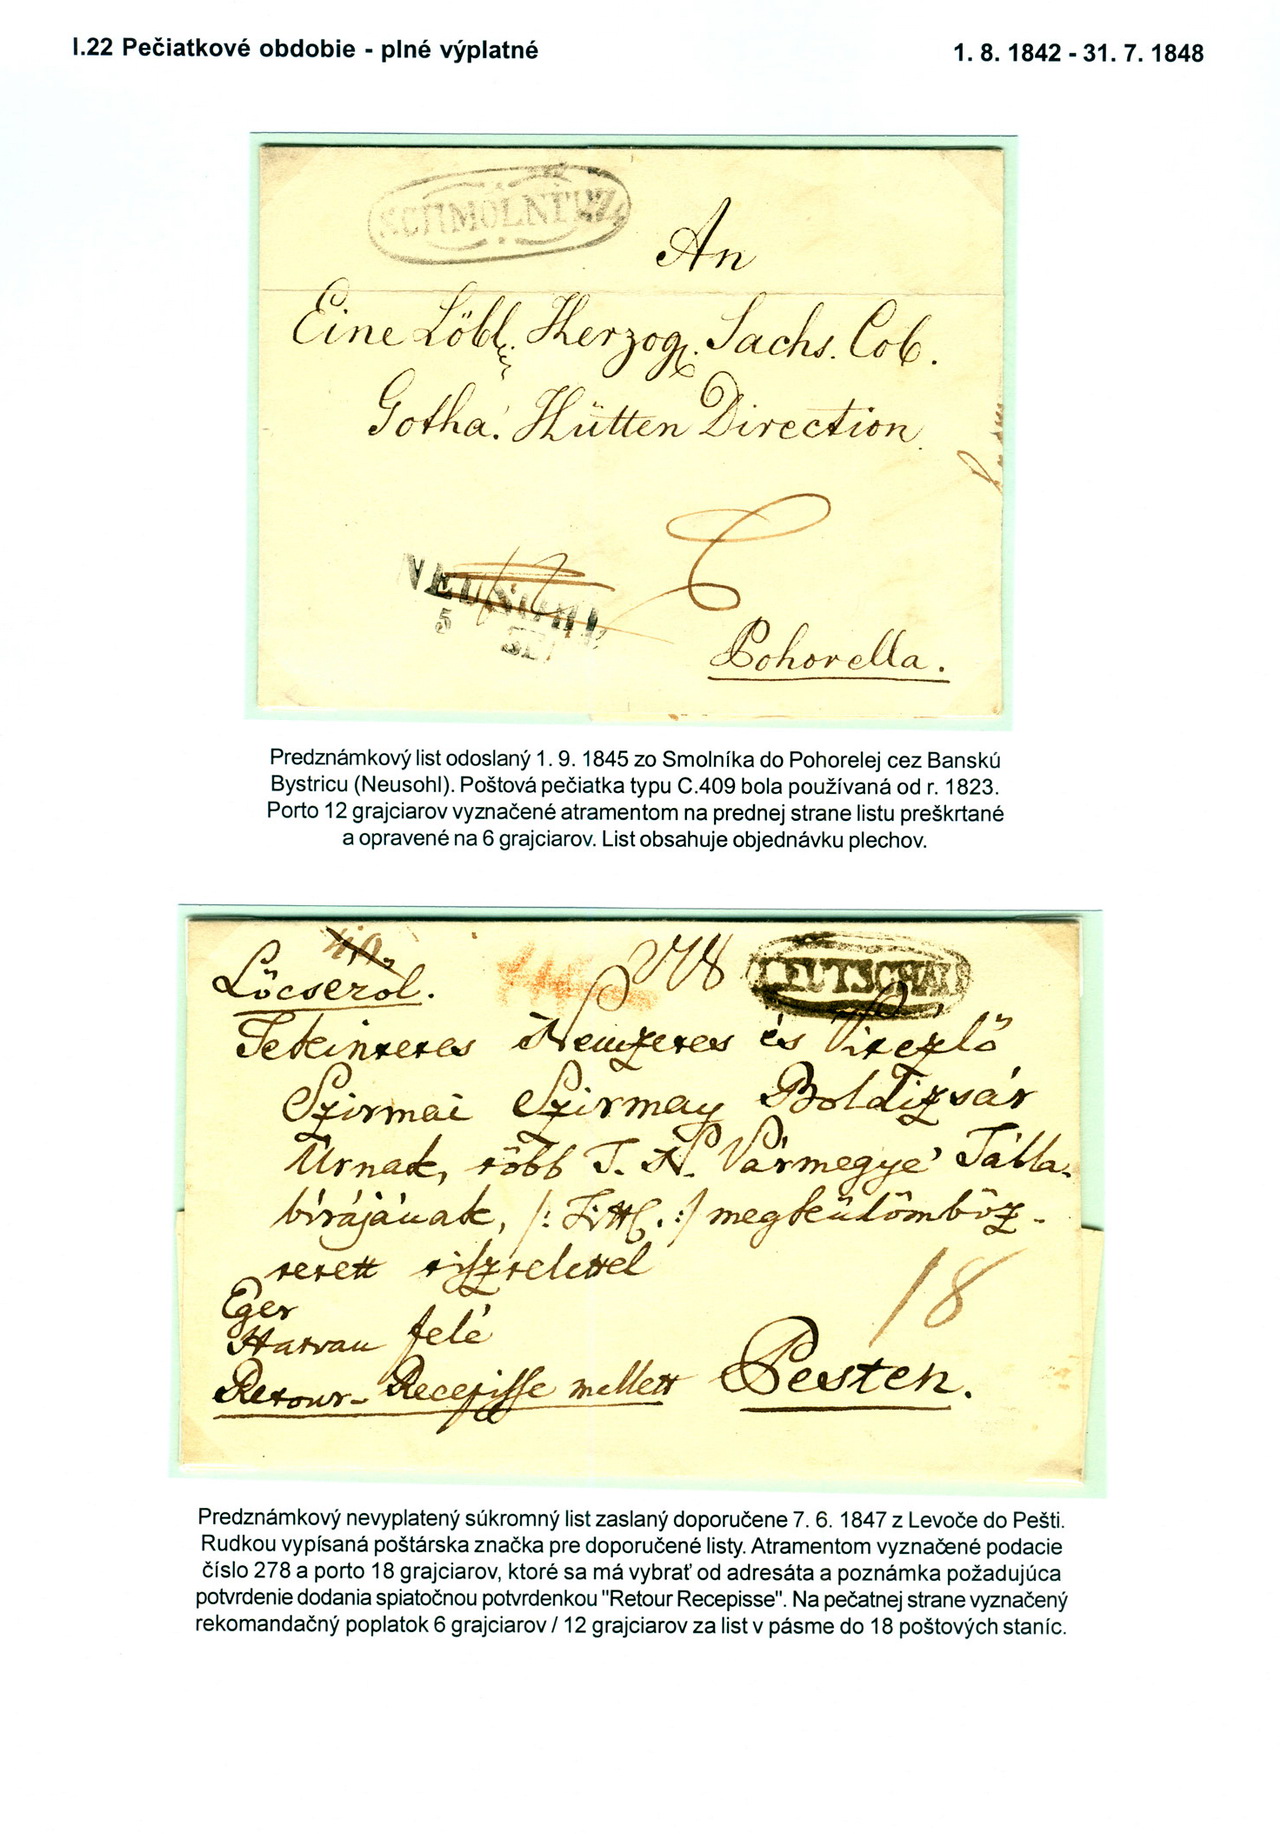 I.22 Pečiatkové obdobie - plné výplatné
1. 8. 1842 - 31. 7. 1848
SCHMÖLNITZ
An
Eine Löbl. Herzog. Sachs. Cob.
Gotha. Hütten Direction
NEUSOHL
12
5
SE
6
Pohorella.
Predznámkový list odoslaný 1. 9. 1845 zo Smolníka do Pohorelej cez Banskú
Bystricu (Neusohl). Poštová pečiatka typu C.409 bola používaná od r. 1823.
Porto 12 grajciarov vyznačené atramentom na prednej strane listu preškrtané
a opravené na 6 grajciarov. List obsahuje objednávku plechov.
Lőcséről.
278
LEUTSCHAU
Tekintetes Nemzetes és Vitézlő
Szirmai Szirmay Boldizsár
Úrnak, több T. N. Vármegye' Tábla-
bírájának, /: Titt. :/ megkülömböz-
tetett tisztelettel
18
Eger
Hatvan felé
Retour-Recepisse mellett
Pesten.
Predznámkový nevyplatený súkromný list zaslaný doporučene 7. 6. 1847 z Levoče do Pešti.
Rudkou vypísaná poštárska značka pre doporučené listy. Atramentom vyznačené podacie
číslo 278 a porto 18 grajciarov, ktoré sa má vybrať od adresáta a poznámka požadujúca
potvrdenie dodania spiatočnou potvrdenkou "Retour Recepisse". Na pečatnej strane vyznačený
rekomandačný poplatok 6 grajciarov / 12 grajciarov za list v pásme do 18 poštových staníc.